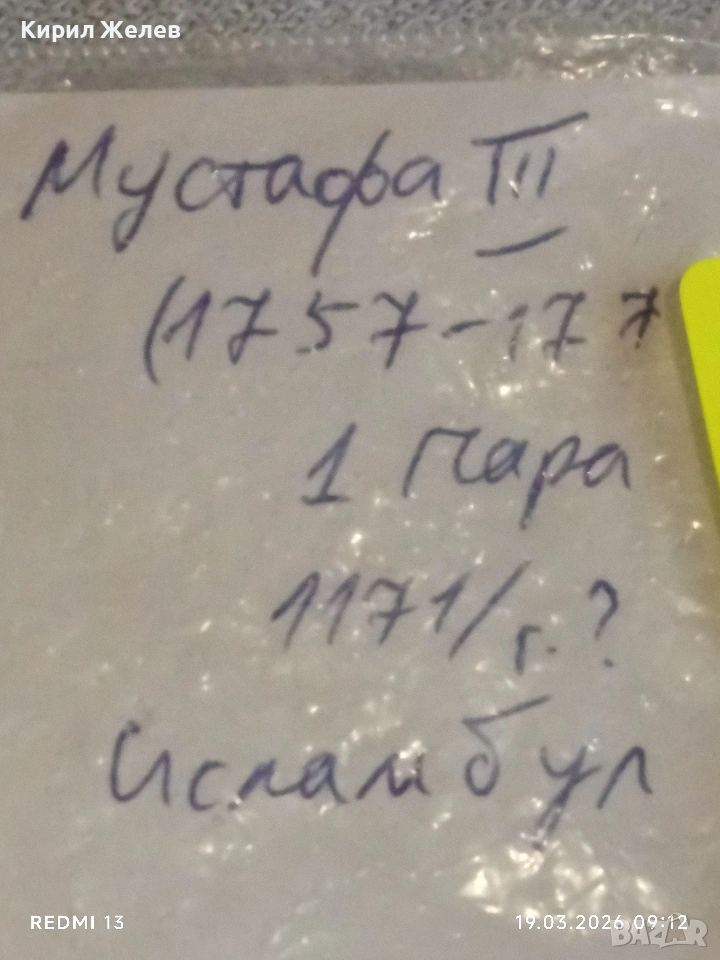 Кирил Желев
Мустафа III
(1757-177
1 пара
1171/г.?
Ислам бул
REDMI 13
19.03.2026 09:12
BAZAR